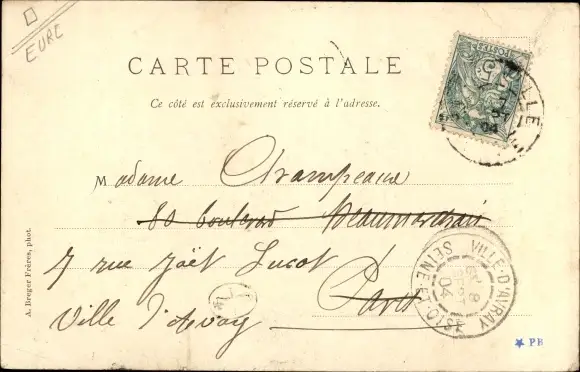 EURE
CARTE POSTALE
Ce côté est exclusivement réservé à l'adresse.
Madame Champeaux
80 boulevard Beaumarchais
7 rue Joët
Paris
Ville d'Avray
VILLE-D'AVRAY
SEINE-ET-OISE
04
A. Breger Frères, phot.
PB